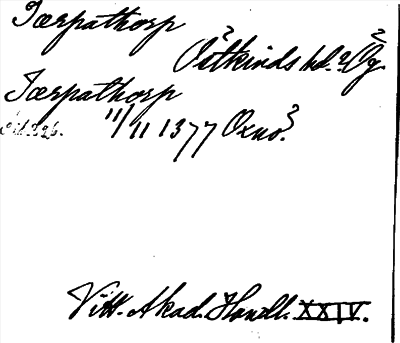 Tærpathorp
Östkinds hd. Ög.
Tærpathorp
11/11 1377 Oxnö.
Vitt. Akad. Handl. XXIV.